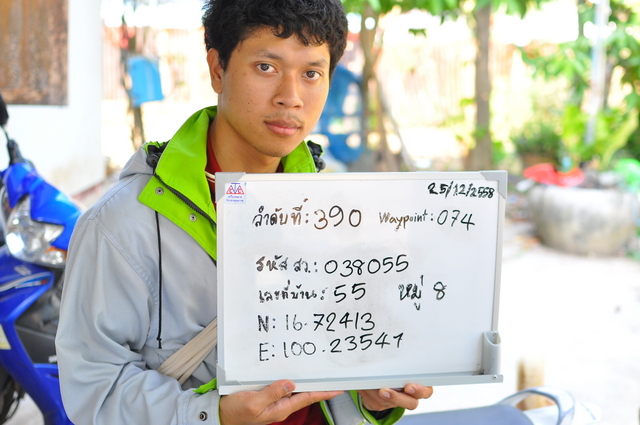 25/12/2558
ลำดับที่: 390 Waypoint: 074
รหัส สว.: 038055
เลขที่บ้าน: 55 หมู่ 8
N: 16.72413
E: 100.23547